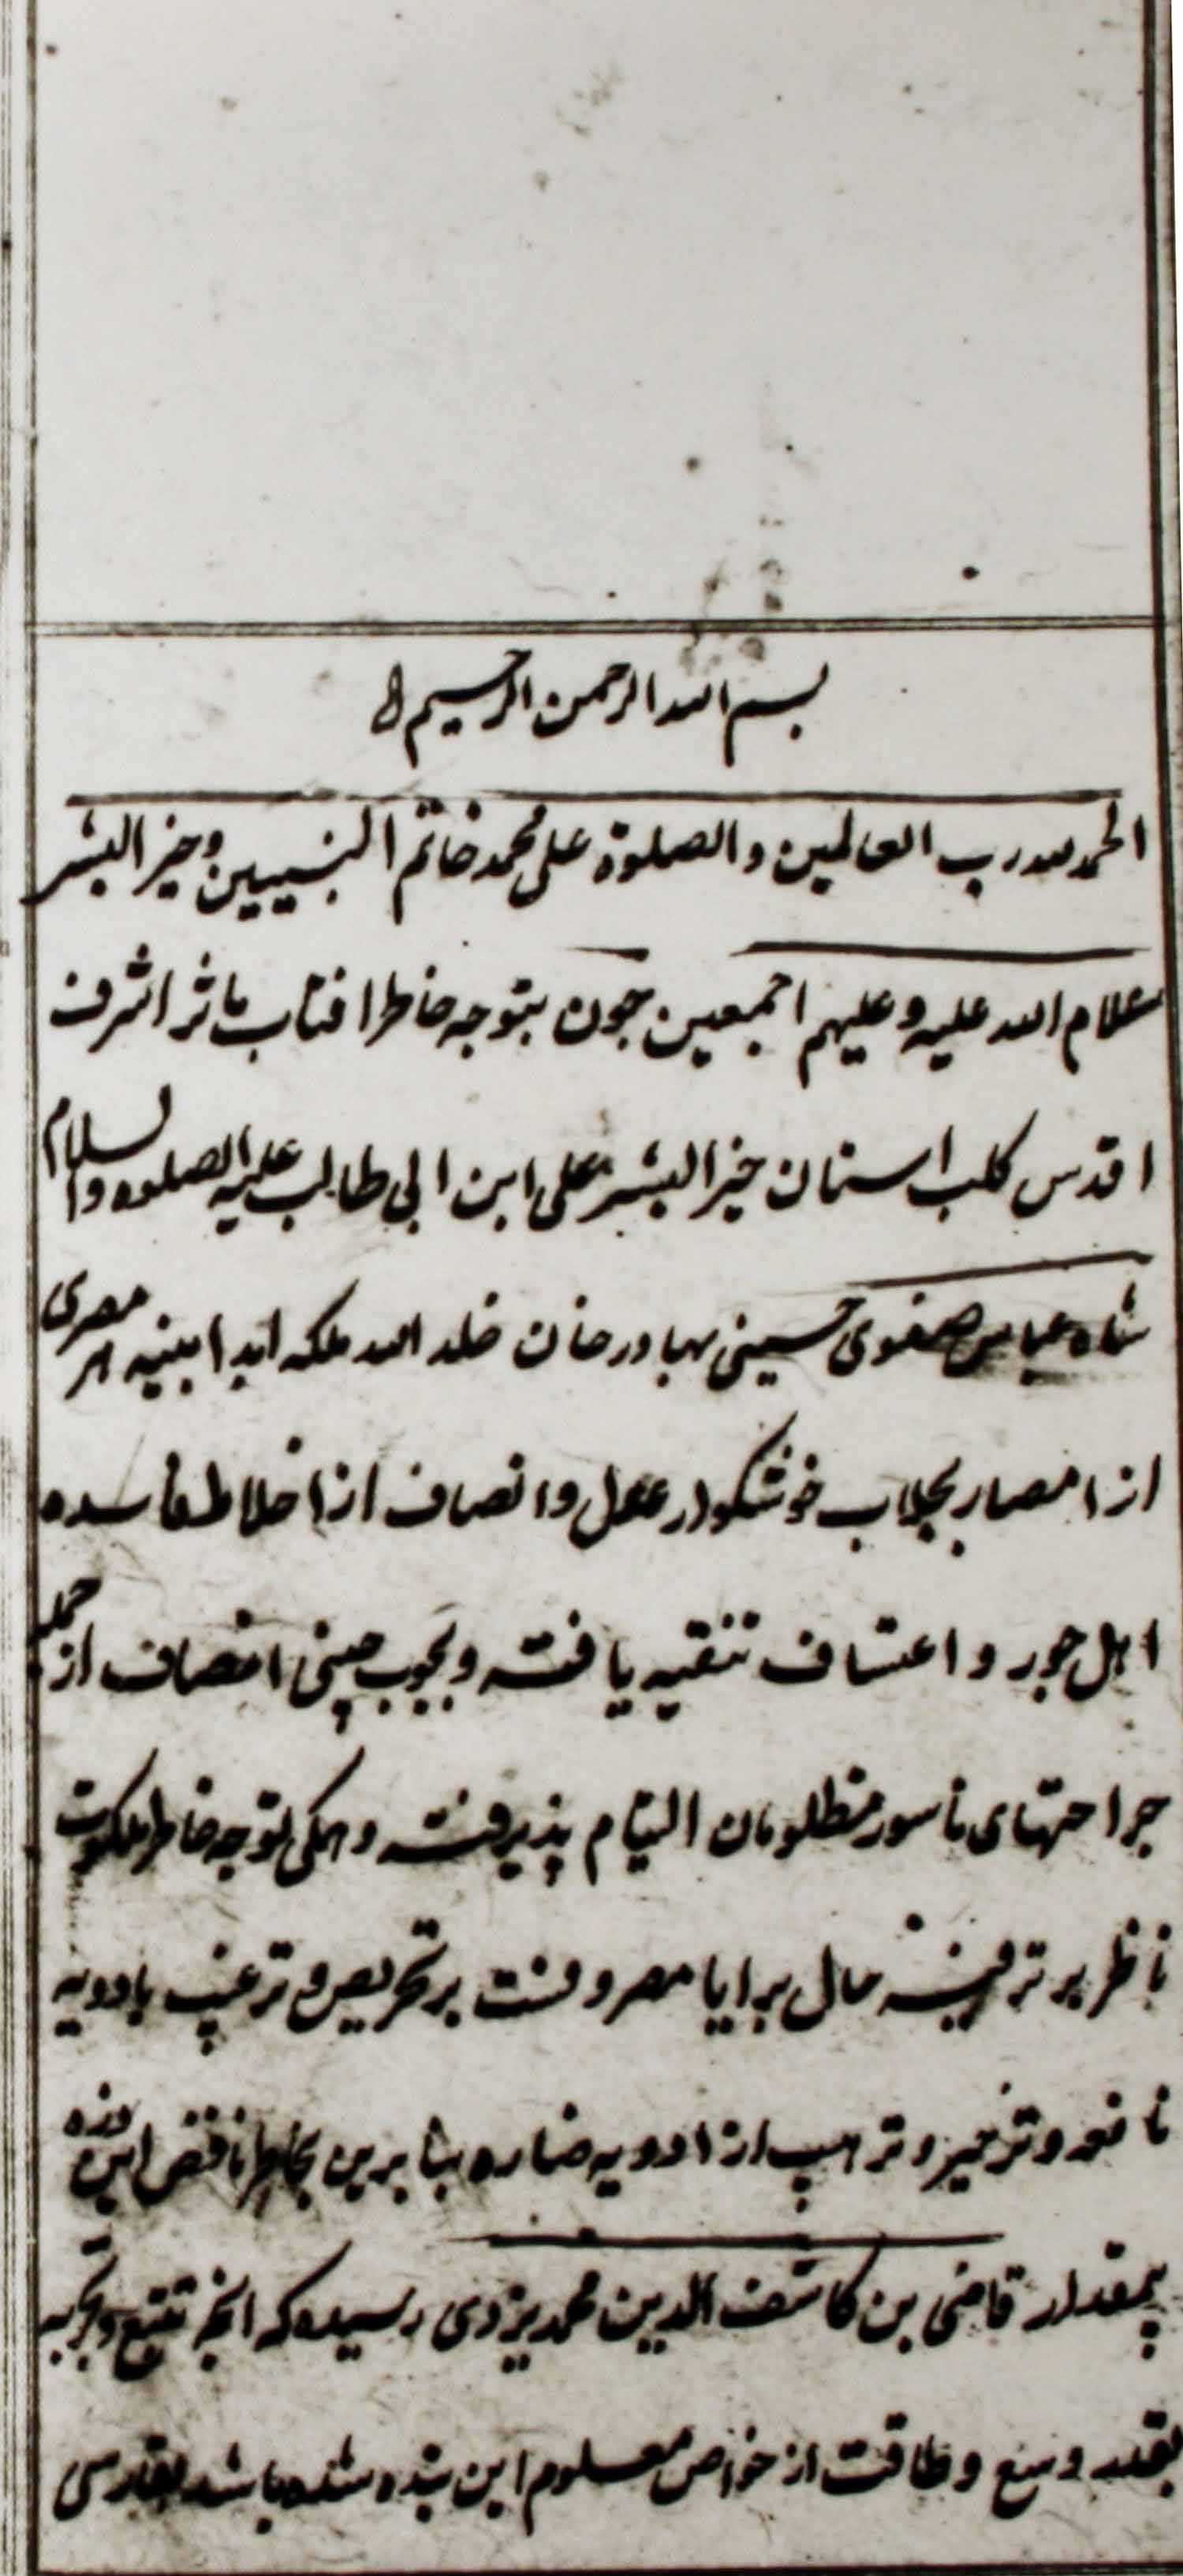 بسم الله الرحمن الرحیم
الحمد لله رب العالمین والصلوة علی محمد خاتم النبیین وخیر البشر
سلام الله علیه وعلیهم اجمعین جون بتوجه خاطر افتاب ماثر اشرف
اقدس کلب استان خیر البشر علی ابن ابی طالب علیه الصلوه والسلام
شاه عباس صفوی حسینی بهادرخان خلد الله ملکه ابدا ابنیه هر مصری
از امصار بجلاب خوشکوار عدل وانصاف از اخلاط فاسده
اهل جور و اعتساف تنقیه یافته و بچوب چینی انصاف از جمله
جراحتهای ناسور مظلومان التیام پذیرفته وهمکی توجه خاطر ملکوت
ناظر بر ترفیه حال برایا مصروفست بر تحریص و ترغیب بادویه
نافعه و تزجیر و ترهیب از ادویه ضاره بنا برین بخاطر ناقص این ذره
بیمقدار قاضی بن کاشف الدین محمد یزدی رسید که انچه تتبع وتجربه
بقدر وسع وطاقت از خواص معلوم این بنده شده باشد بفارسی